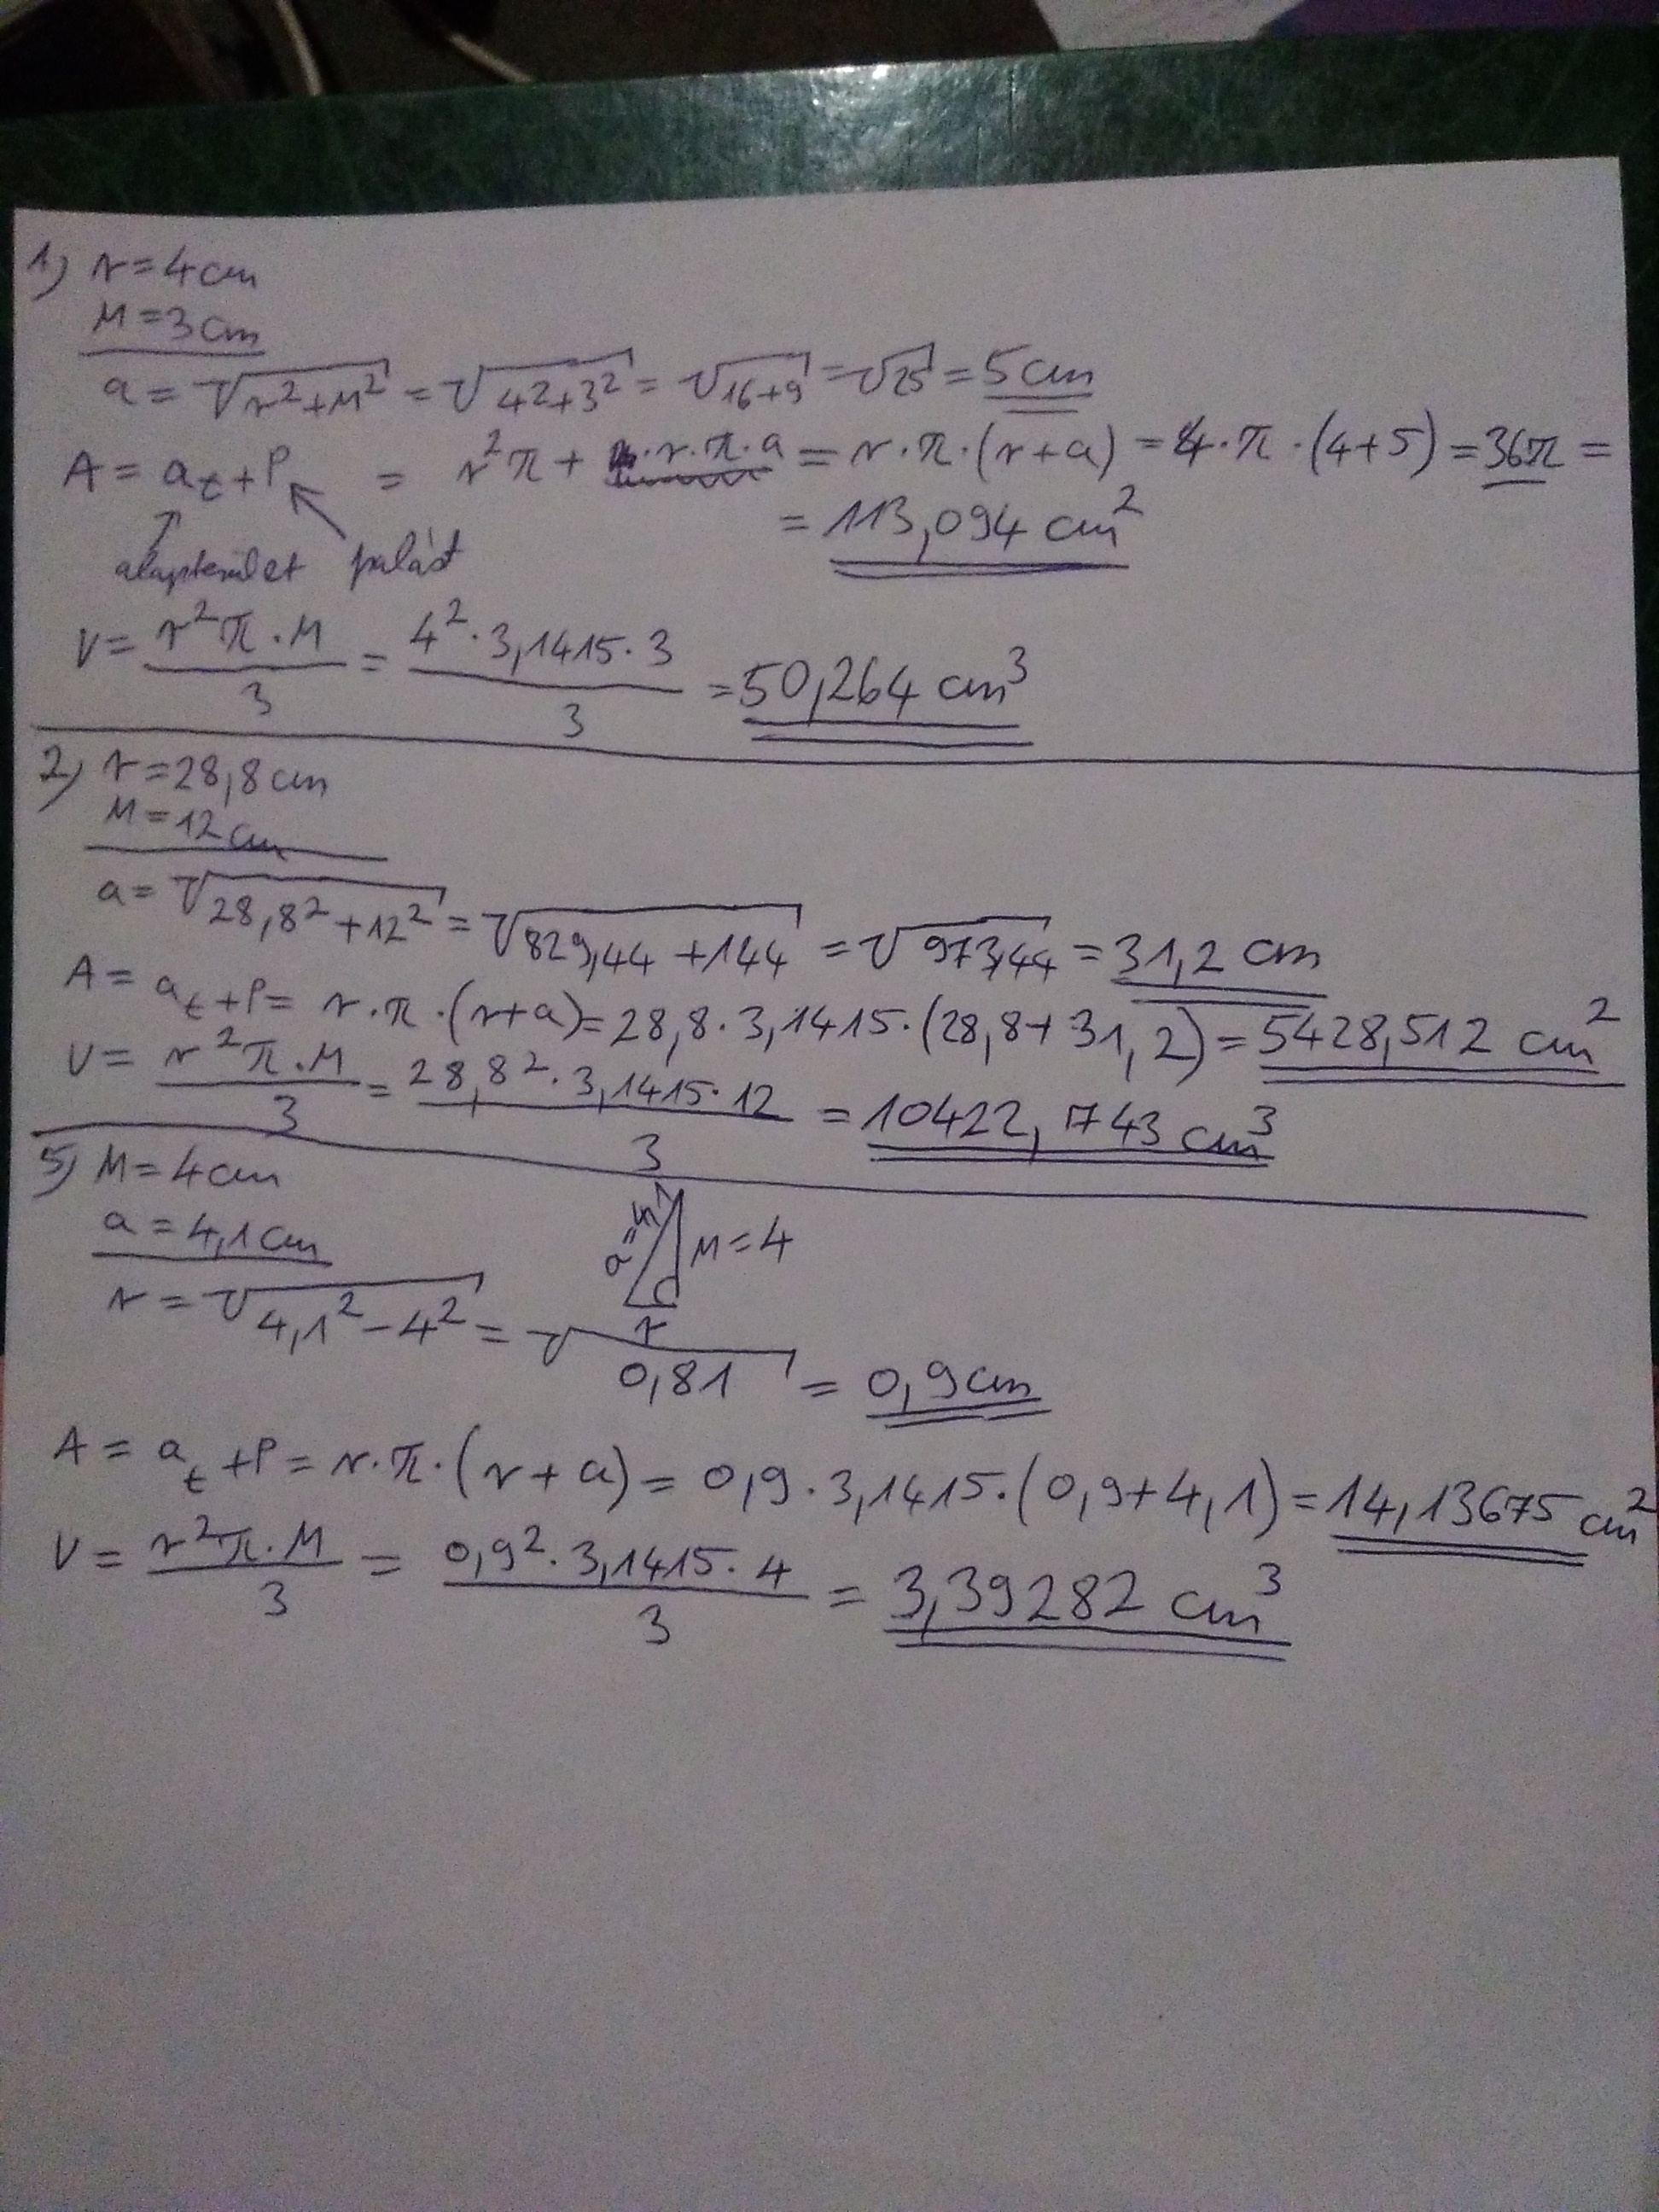 1) r = 4 cm
M = 3 cm
a = √(r²+M²) = √(4²+3²) = √(16+9) = √25 = 5 cm
A = a_t + P = r²π + r·π·a = r·π·(r+a) = 4·π·(4+5) = 36π =
= 113,094 cm²
alapterület palást
V = r²π·M / 3 = 4²·3,1415·3 / 3 = 50,264 cm³
2) r = 28,8 cm
M = 12 cm
a = √(28,8²+12²) = √(829,44+144) = √973,44 = 31,2 cm
A = a_t + P = r·π·(r+a) = 28,8·3,1415·(28,8+31,2) = 5428,512 cm²
V = r²π·M / 3 = 28,8²·3,1415·12 / 3 = 10422,743 cm³
5) M = 4 cm
a = 4,1 cm
M = 4
r = √(4,1²-4²) = √0,81 = 0,9 cm
r
A = a_t + P = r·π·(r+a) = 0,9·3,1415·(0,9+4,1) = 14,13675 cm²
V = r²π·M / 3 = 0,9²·3,1415·4 / 3 = 3,39282 cm³